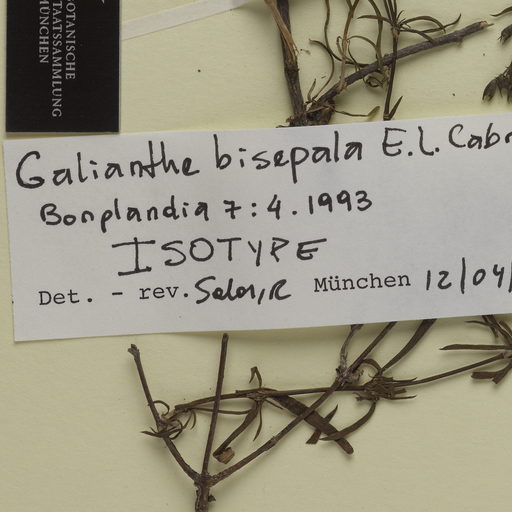 BOTANISCHE
STAATSSAMMLUNG
MÜNCHEN
Galianthe bisepala E.L. Cabr
Bonplandia 7:4.1993
ISOTYPE
Det. - rev. München 12/04/